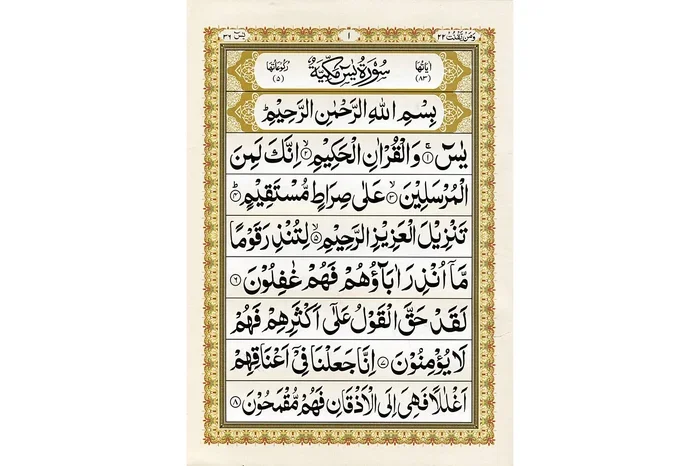 ومن يقنت ٢٢
١
يٰسٓ ٣٦
اٰیَاتُهَا (٨٣)
سُوْرَةُ يٰسٓ مَكِّيَّةٌ
رُكُوْعَاتُهَا (٥)
بِسْمِ اللّٰهِ الرَّحْمٰنِ الرَّحِيْمِ ؕ
يٰسٓ ۚ﴿١﴾ وَالْقُرْاٰنِ الْحَكِيْمِ ۙ﴿٢﴾ اِنَّكَ لَمِنَ
الْمُرْسَلِيْنَ ۙ﴿٣﴾ عَلٰى صِرَاطٍ مُّسْتَقِيْمٍ ؕ﴿٤﴾
تَنْزِيْلَ الْعَزِيْزِ الرَّحِيْمِ ۙ﴿٥﴾ لِتُنْذِرَ قَوْمًا
مَّاۤ اُنْذِرَ اٰبَآؤُهُمْ فَهُمْ غٰفِلُوْنَ ﴿٦﴾
لَقَدْ حَقَّ الْقَوْلُ عَلٰٓى اَكْثَرِهِمْ فَهُمْ
لَا يُؤْمِنُوْنَ ﴿٧﴾ اِنَّا جَعَلْنَا فِىْۤ اَعْنَاقِهِمْ
اَغْلٰلًا فَهِىَ اِلَى الْاَذْقَانِ فَهُمْ مُّقْمَحُوْنَ ﴿٨﴾